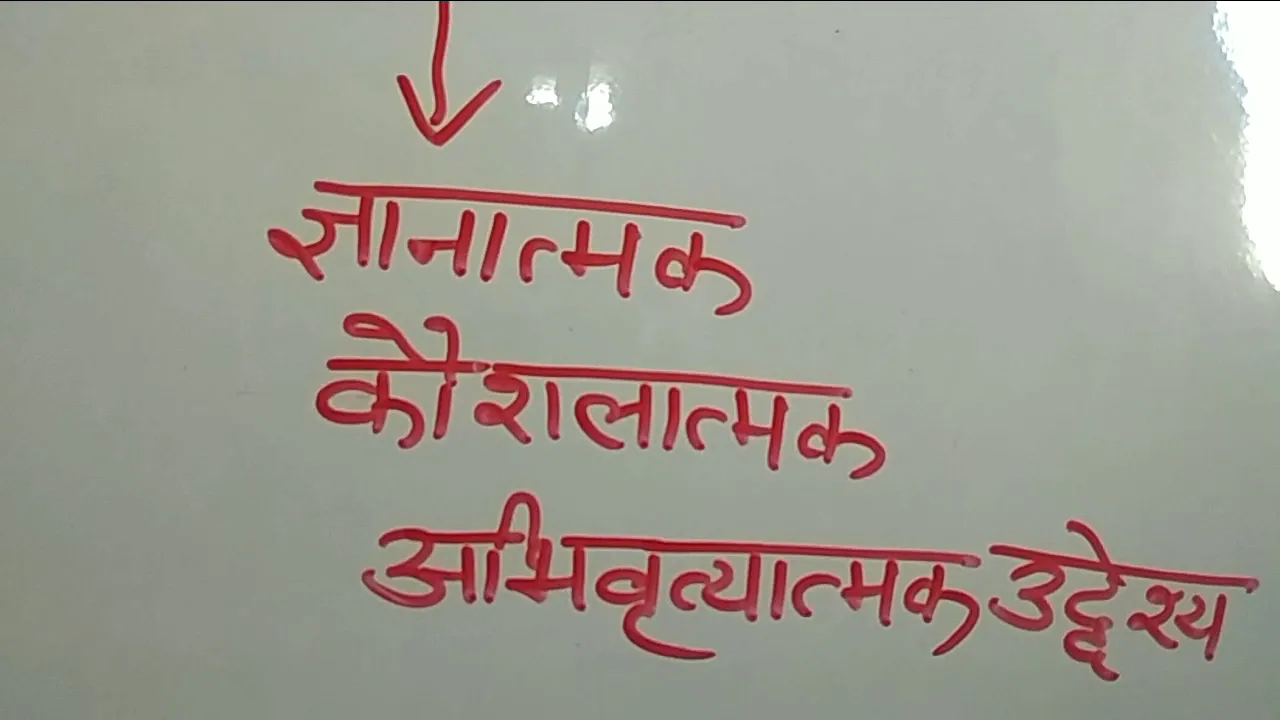 ज्ञानात्मक
कौशलात्मक
अभिवृत्यात्मक उद्देश्य